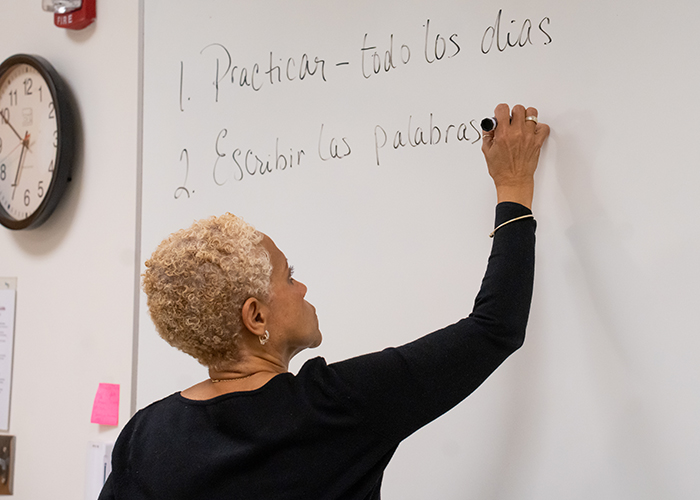 FIRE
1. Practicar - todo los dias
2. Escribir las palabras
11
12
1
10
2
9
3
8
4
7
6
5